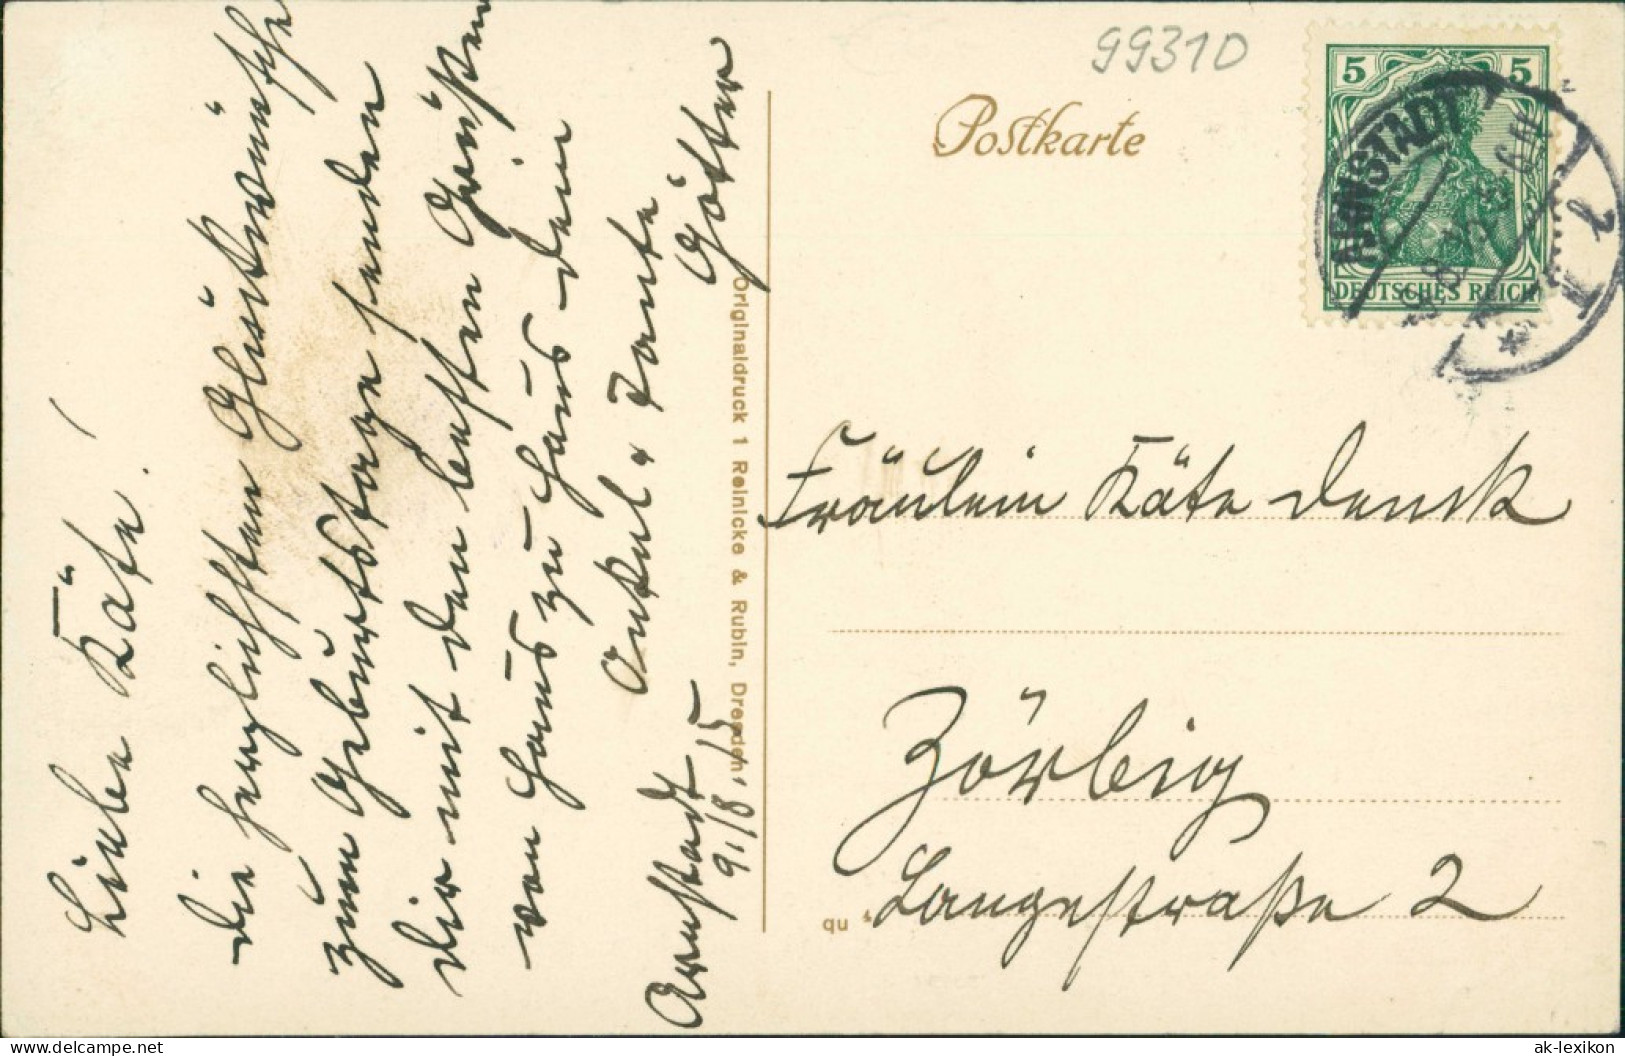 99310
Postkarte
5 5
DEUTSCHES REICH
ARNSTADT
Liebe Käte!
Die herzlichsten Glückwünsche
zum Geburtstage senden
Dir mit den besten Grüßen
von Haus zu Haus Dein
Onkel u Tante
Götter
Arnstadt
9./8.15
Originaldruck 1 Reinicke & Rubin, Dresden
Fräulein Käte Denck
Zörbig
qu
Langestraße 2
delcampe.net
ak-lexikon